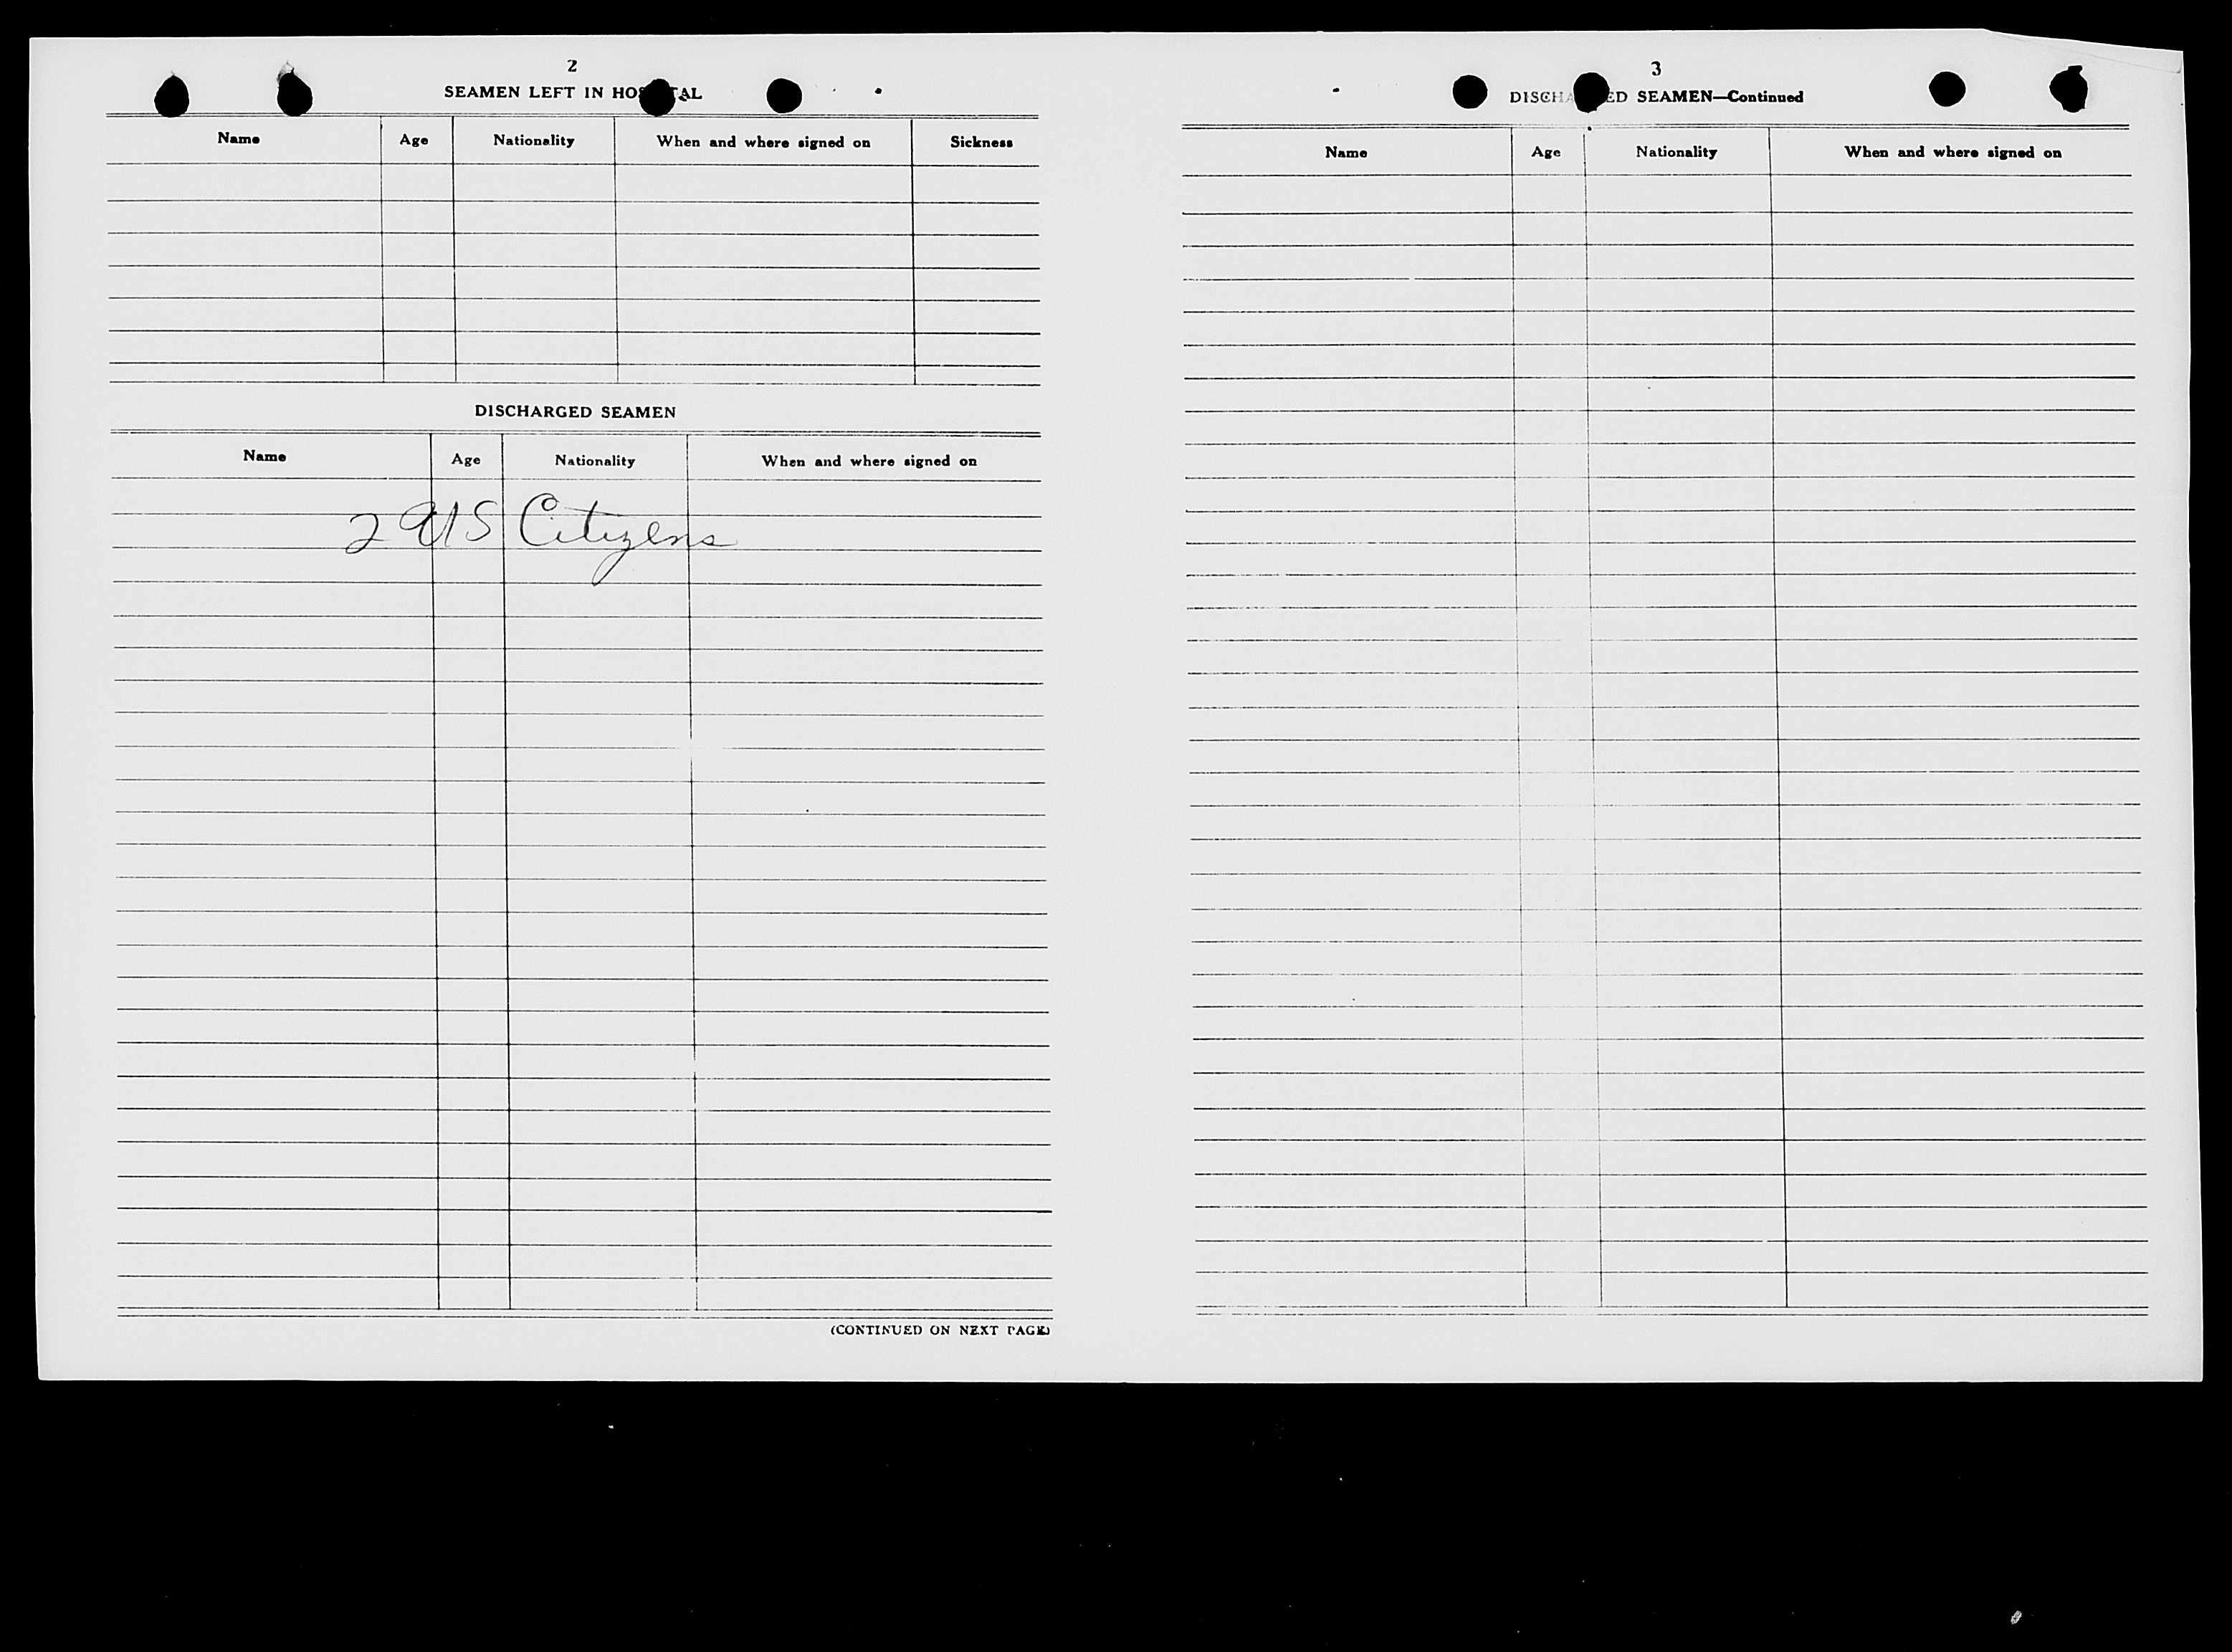 2
SEAMEN LEFT IN HOSPITAL
Name Age Nationality When and where signed on Sickness
DISCHARGED SEAMEN
Name Age Nationality When and where signed on
2 US Citizens
(CONTINUED ON NEXT PAGE)
3
DISCHARGED SEAMEN—Continued
Name Age Nationality When and where signed on